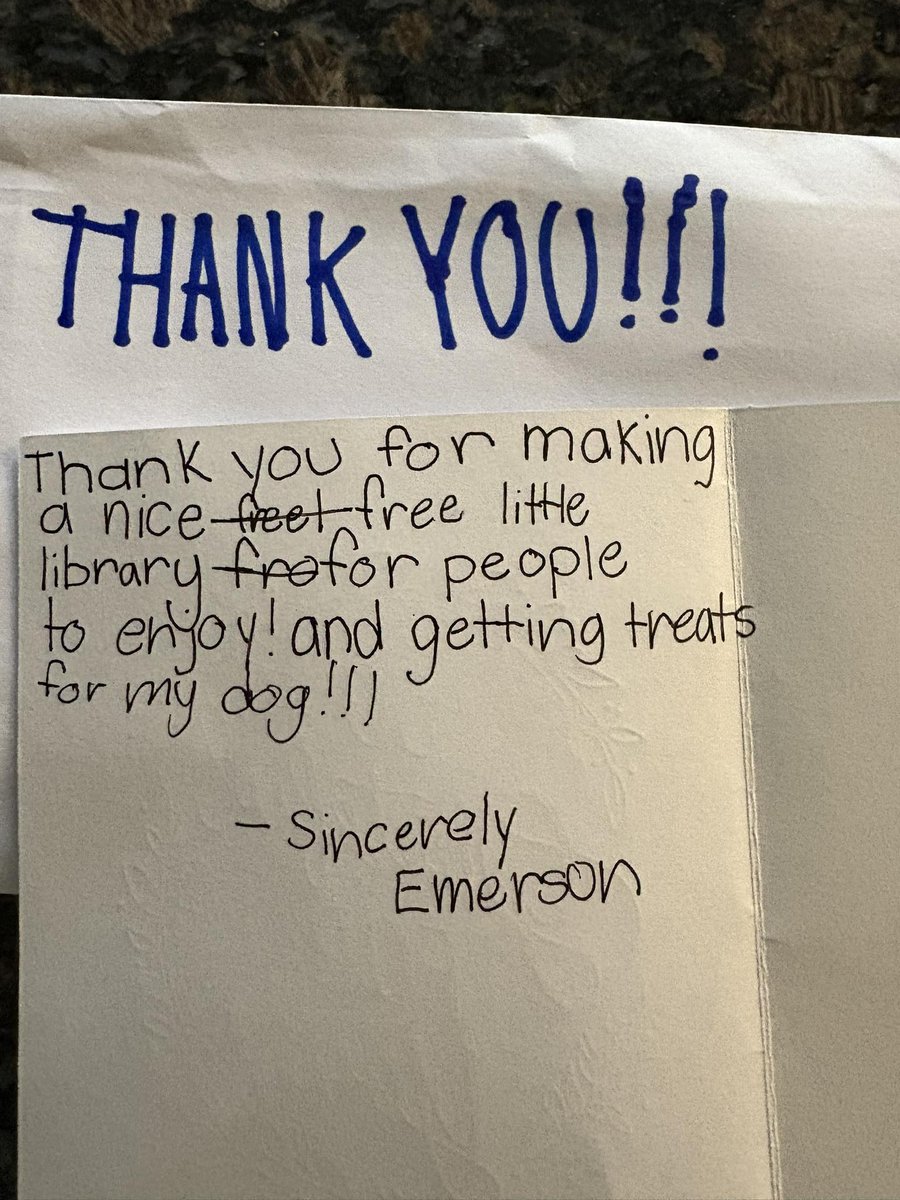 THANK YOU!!!
Thank you for making
a nice feel free little
library fro for people
to enjoy! and getting treats
for my dog!!!
- Sincerely
Emerson